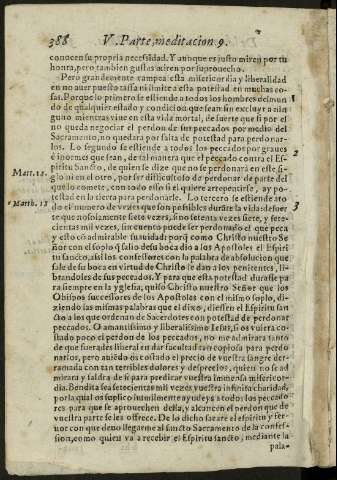 388 V. Parte, meditacion 9.
conocen su propria necessidad. Y aunque es justo miren por tu
honra, pero tambien gustas miren por su prouecho.
Pero grandemente campea esta misericordia y liberalidad
en no auer puesto tassa ni limite a esta potestad en muchas co-
sas. Porque lo primero se estiende a todos los hombres del mun- 1
do de qualquier estado y condicion que sean sin excluyr a nin
guno mientras viue en esta vida mortal, de suerte que si por el
no queda negociar el perdon de sus peccados por medio del
Sacramento, no quedara por falta de potestad para perdonar-
los. Lo segundo se estiende a todos los peccados por graues 2
e inormes que sean, de tal manera que el peccado contra el Es-
piritu Sancto, de quien se dize que no se perdonará en este si-
Matt.12. glo ni en el otro, por ser dificultoso de perdonar de parte del
que lo comete, con todo esso si el quiere arrepentirse, ay po-
testad en la tierra para perdonarle. Lo tercero se estiende a to
Matth. 18 do el numero de vezes que son possibles durante la vida: de suer 3
te que no solamente siete vezes, sino setenta vezes siete, y sete-
cientas mil vezes, sin cuento puede ser perdonado el que peca
y esto cō admirable suauidad: porq̄ como Christo nuestro Se
ñor con el soplo q̄ salio de su boca dio a los Apostoles el Espiri
tu sancto, assi los confessores con la palabra de absolucion que
sale de su boca en virtud de Christo le dan a los penitentes, li-
brandolos de sus peccados. Y para que esta potestad durasse pa
ra siempre en la yglesia, quiso Christo nuestro Señor que los
Obispos successores de los Apostoles con el mismo soplo, di-
ziendo las mismas palabras que el dixo, diessen el Espiritu san
cto a los que ordenan de Sacerdotes con potestad de perdonar
peccados. O amantissimo y liberalissimo Iesus, si os vuiera co-
stado poco el perdon de los peccados, no me admirara tanto
de que fuerades liberal en dar facultad tan copiosa para perdo
narlos, pero auiēdo os costado el precio de vuestra sangre der-
ramada con tan terribles dolores y desprecios, quien no se ad
mirara y saldra de si para predicar vuestra immensa misericor-
dia. Bendita sea setecientas mil vezes vuestra infinita charidad,
por la qual os suplico humilmente ayudeys a todos los peccado
res para que se aprouechen della, y alcancen el perdon que de
vuestra parte se les offrece. De lo dicho sacare el espiritu y fer
uor con que deuo llegarme al sancto Sacramento de la confes-
sion, como quien va a recebir el Espiritu sancto, mediante la
pala-